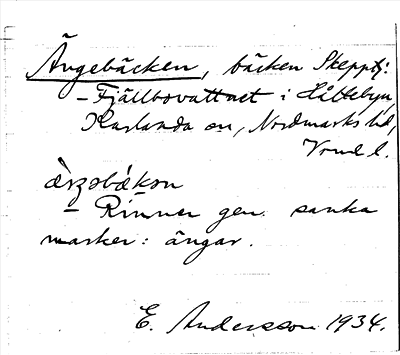 Ängebäcken, bäcken Skeppts:
- Fjällbovattnet i Håltebyn,
Karlanda sn, Nordmarks hd,
Vrml l.
ὰŋəbὰkən
- Rinner gen. sanka
marker: ängar.
E. Andersson 1934.